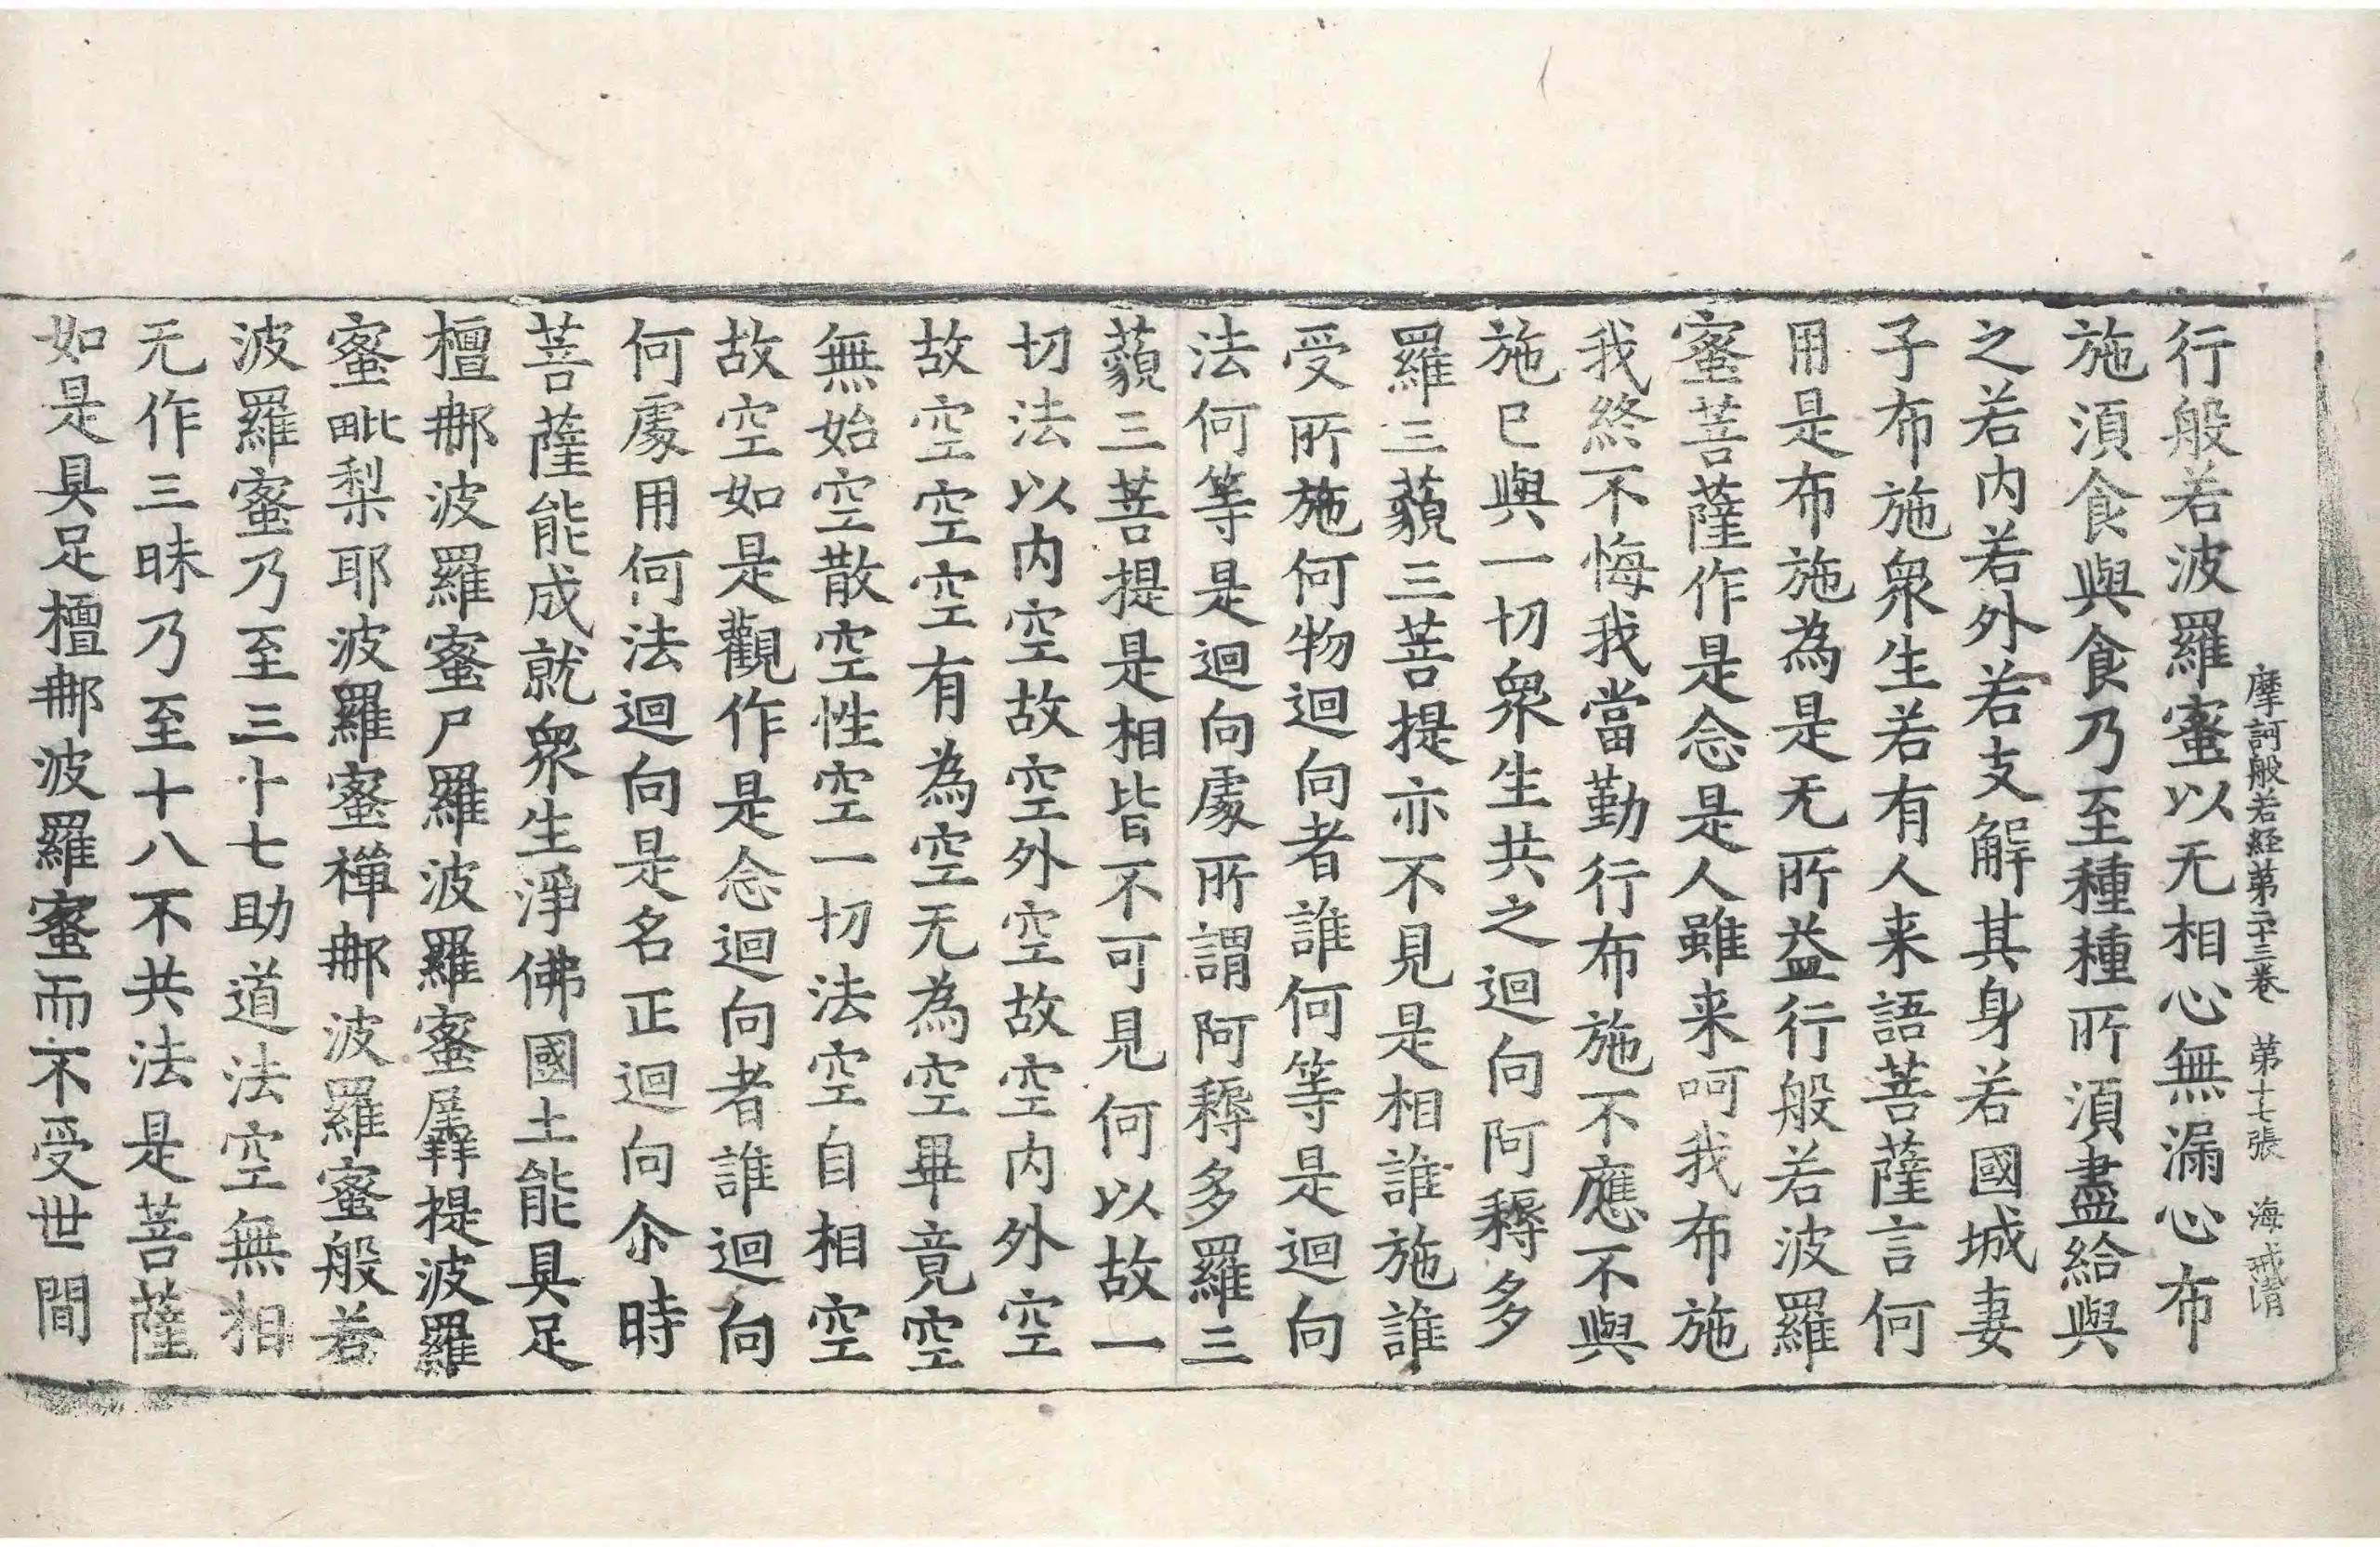 摩訶般若経第二十三卷 第十七張 海戒清
行般若波羅蜜以无相心無漏心布
施湏食與食乃至種種所湏盡給與
之若内若外若支解其身若國城妻
子布施衆生若有人来語菩薩言何
用是布施為是无所益行般若波羅
蜜菩薩作是念是人雖来呵我布施
我終不悔我當勤行布施不應不與
施已與一切衆生共之迴向阿耨多
羅三藐三菩提亦不見是相誰施誰
受所施何物迴向者誰何等是迴向
法何等是迴向處所謂阿耨多羅三
藐三菩提是相皆不可見何以故一
切法以内空故空外空故空内外空
故空空空空有為空无為空畢竟空
無始空散空性空一切法空自相空
故空如是觀作是念迴向者誰迴向
何處用何法迴向是名正迴向尒時
菩薩能成就衆生淨佛國土能具足
檀𨚗波羅蜜尸羅波羅蜜羼提波羅
蜜毗梨耶波羅蜜禪𨚗波羅蜜般若
波羅蜜乃至三十七助道法空無相
无作三昧乃至十八不共法是菩薩
如是具足檀𨚗波羅蜜而不受世間